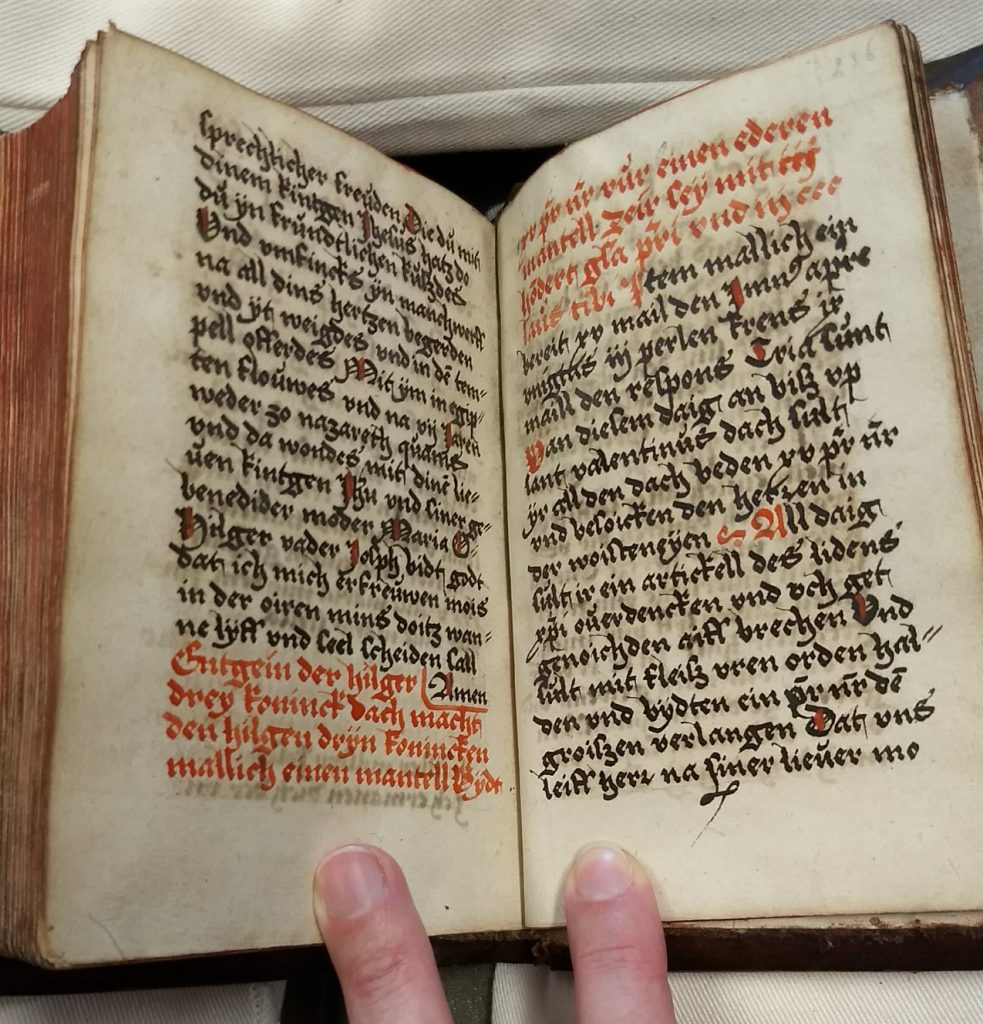 sprechlicher freuden Die du mit
dinem kintgen Jhesus hatz do
du yn frundtlichen kusszdes
Vnd vmfincks yn manchwerff
na all dins hertzen begerden
vnd yt weigdes vnd in dē tem-
pell offerdes Mit ym in egip-
ten flouwes vnd na vij Jaren
weder zo nazareth quams
vnd da wondes mit dinē lie-
uen kintgen Jhu vnd siner ge-
benedider moder Maria O
Hilger vader Joseph bidt godt
dat ich mich erfreuwen mois
in der oiren mins doitz wan-
ne lyff vnd seel scheiden sall
Amen
Entgein der hilger
drey koninck dach macht
den hilgen dryn konincken
mallich einen mantell Bydt
xv pr nr vur einen ederen
mantell zeir sey mit iij
gla pri vnd iij
laus tibi Item mallich ein
bereit xv mail den Jmnus
iij perlen krens ix
maill den respons Tria sunt
Van diesem daig an bisz vp
sant valentinus dach sult
yr all den dach beden xv pr nr
vnd besoicken den in
der woisteneyen All daig
sult ir ein artickell des lidens
xpi ouerdencken vnd och get
genoichden aiff brechen Vnd
sult mit fleisz vren orden hal-
den vnd bydten ein pr nr dē
groiszen verlangen Dat vns
leiff herr na siner lieuer mo